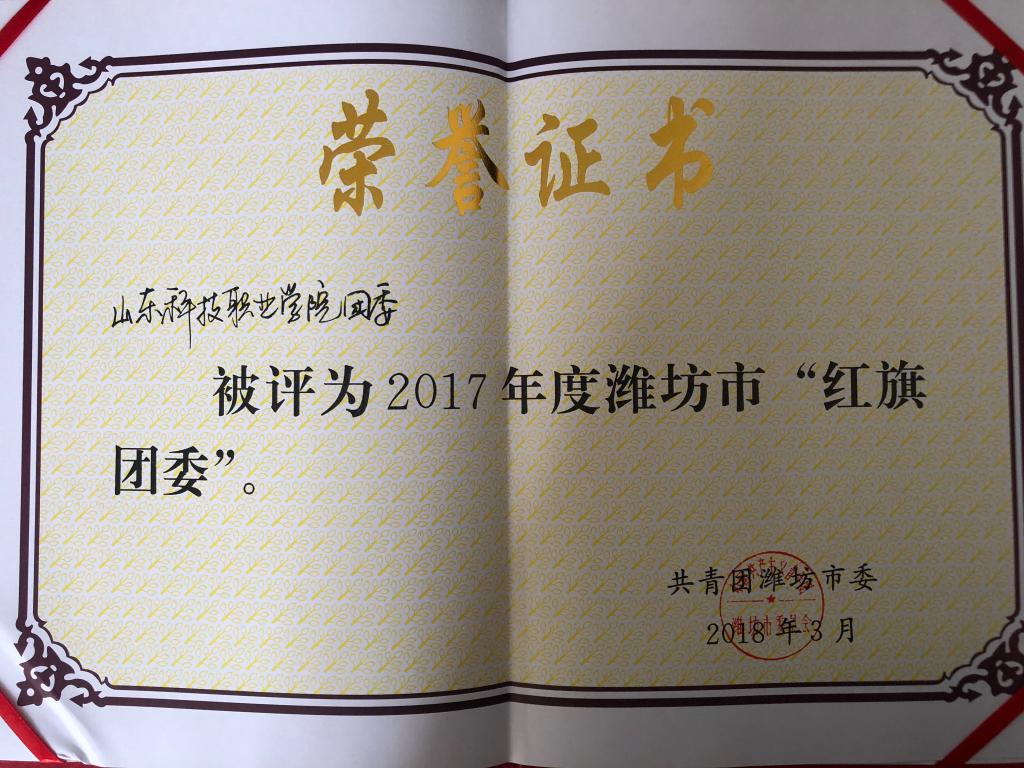 荣誉证书
山东科技职业学院团委
被评为2017年度潍坊市“红旗
团委”。
共青团潍坊市委
2018年3月
潍坊市委员会